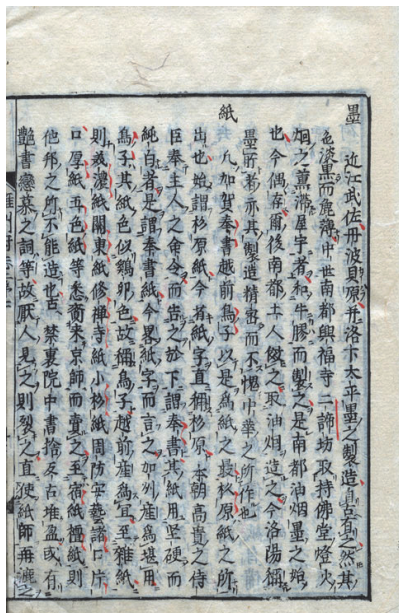 墨　近江武佐丹波貝原并洛下太平墨之製造自古有之然其
色淡黒而麁薄中世南都興福寺二諦坊取持佛堂燈火
烟之薫滯屋宇者和牛膠而製之是南都油烟墨之始
也今偶存爾後南都土人傚之取油烟造之今洛陽稱
墨所者亦其製造精密而不愧中華之所作也
紙　凡加賀奉書越前鳥子以是為紙之最杉原紙之所
出也始謂杉原紙今省紙字直稱杉原本朝髙貴之侍
臣奉主人之命令而告之於下謂奉書其紙用堅硬而
純白者是謂奉書紙今畧紙字而言之加州産為堪用
鳥子其紙色似鷄卵色故稱鳥子越前産為宜至雜紙
則美濃紙關東紙修禅寺紙小杉紙周防安藝諸口片
口厚紙五色紙等悉商来京師而賣之至宿紙檀紙則
他邦之所不能造也古　禁裏院中書捨反古堆盈或有
艶書戀慕之詞等故厭人見之則裂之直使紙師再漉之